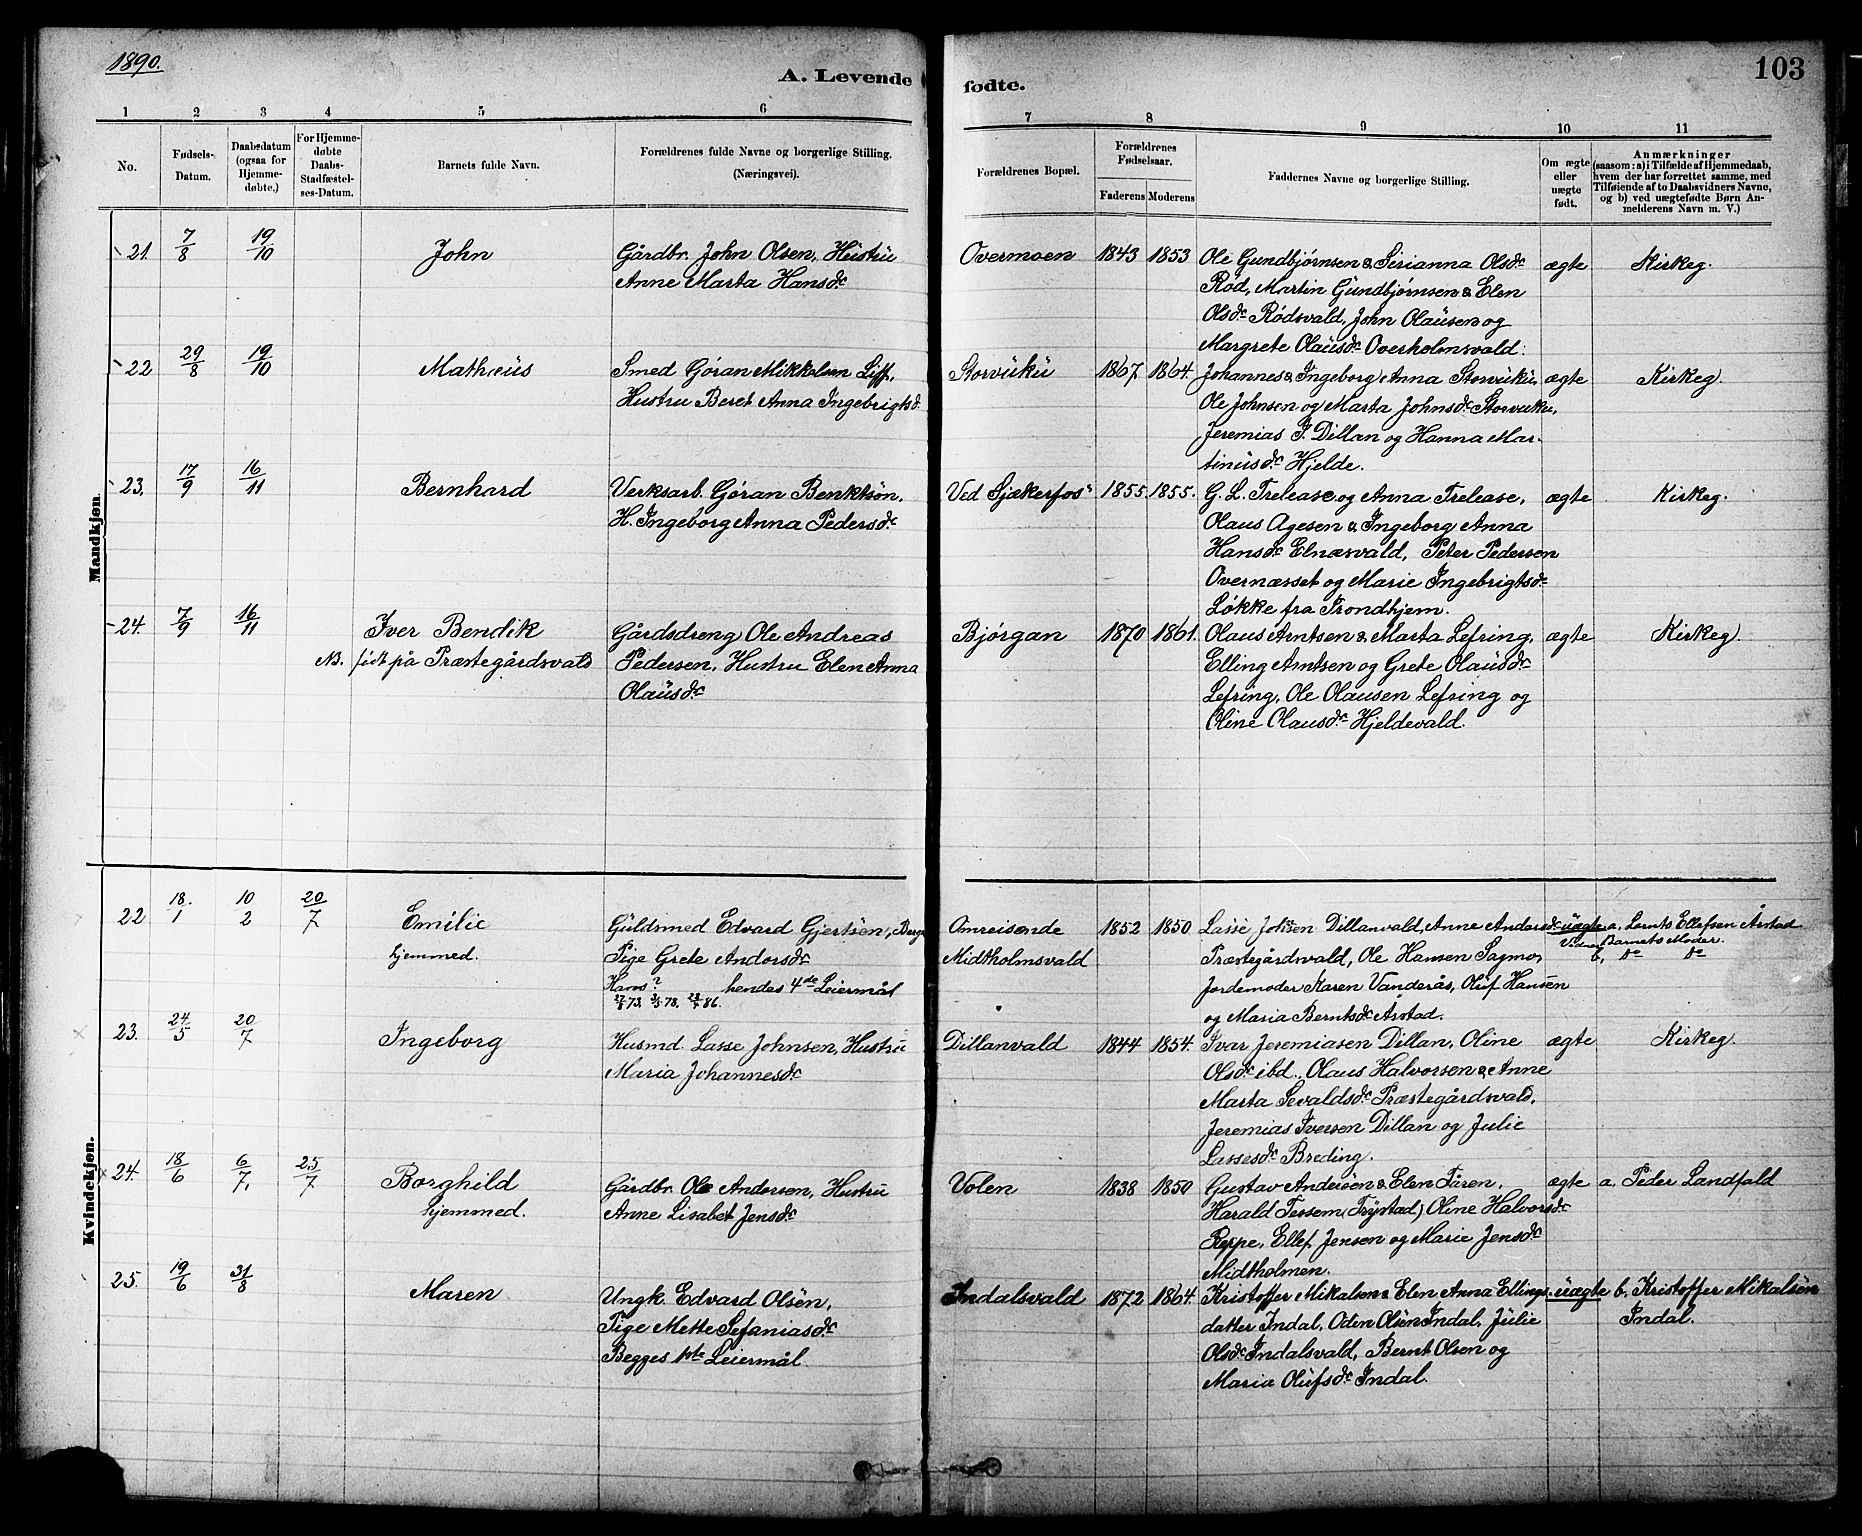 1890.
103
A. Levende fødte.
1 2 3 4 5 6 7 8 9 10 11
No.
Fødsels-Datum.
Daabsdatum (ogsaa for Hjemmedøbte.)
For Hjemmedøbte Daabs-Stadfæstelses-Datum.
Barnets fulde Navn.
Forældrenes fulde Navne og borgerlige Stilling. (Næringsvei).
Forældrenes Bopæl.
Forældrenes Fødselsaar.
Faderens Moderens
Faddernes Navne og borgerlige Stilling.
Om ægte eller uægte født.
Anmærkninger
(saasom: a) i Tilfælde af Hjemmedaab,
hvem der har forrettet samme, med
Tilføiende af to Daabsvidners Navne,
og b) ved uægtefødte Børn An-
melderens Navn m. V.)
Mandkjøn.
21. 7/8 19/10 John
Gårdbr. John Olsen, Hustru
Anne Marta Hansdr
Overmoen 1843 1853
Ole Gundbjørnsen & Sirianna Olsdr
Rød, Martin Gundbjørnsen & Elen
Olsdr Rødsvald, John Olausen og
Margrete Olausdr Overholmsvald.
ægte Kirkeg.
22 29/8 19/10 Matheus
Smed Göran Mikkelsen Liff,
Hustru Beret Anna Ingebrigtsd.
Storvuku 1867 1864.
Johannes & Ingeborg Anna Storvuku,
Ole Johnsen og Marta Johnsdr Storvuku,
Jeremias J. Dillan og Hanna Mar-
tinusdr Hjelde.
ægte Kirkeg.
23. 17/9 16/11 Bernhard
Verksarb. Göran Benktsön,
H. Ingeborg Anna Pedersdr
Ved Sjækerfos 1855 1855.
G. L. Trelease og Anna Trelease,
Olaus Agesen & Ingeborg Anna
Hansdr Elnæsvald, Peter Pedersen
Overnæsset og Marie Ingebrigtsdr
Løkke fra Trondhjem.
ægte Kirkeg.
24. 7/9 16/11 Iver Bendik
NB. født på Præstegårdsvald
Gårdsdreng Ole Andreas
Pedersen, Hustru Elen Anna
Olausdr
Bjørgan 1870 1861.
Olaus Arntsen & Marta Lefring,
Elling Arntsen og Grete Olausdr
Lefring, Ole Olausen Lefring og
Oline Olausdr Hjeldevald.
ægte Kirkeg.
Kvindekjøn.
22 18/1 10/2 20/7 Emilie
hjemmed.
Guldsmed Edvard Gjertsen,
Pige Grete Andorsdr
hendes 4de Leiermål
Omreisende
Midtholmsvald
1852 1850
Lasse Johsen Dillanvald, Anne Andorsdr
Præstegårdsvald, Ole Hansen Sagmo,
Jordemoder Karen Vanderås, Oluf Hansen
og Maria Berntsdr Årstad.
uægte a. Lornts Ellefsen Årstad
Barnets Moder.
b. do do
23. 24/5 20/7 Ingeborg
Husmd. Lasse Johnsen, Hustru
Maria Johannesdr
Dillanvald 1844 1854.
Ivar Jeremiasen Dillan, Oline
Olsdr ibd., Olaus Halvorsen & Anne
Marta Sevaldsdr Præstegårdsvald,
Jeremias Iversen Dillan og Julie
Lassesdr Breding.
ægte Kirkeg.
24. 18/6 6/7. 25/7 Borghild
hjemmed.
Gårdbr. Ole Andersen, Hustru
Anne Lisabet Jensdr
Volen 1838 1850
Gustav Andersen & Elen Fåren,
Harald Tessem (Trystad) Oline Halvorsdr
Reppe, Ellef Jensen og Marie Jensdr
Midtholmen.
ægte a. Peder Landfald
25. 19/6 31/8 Maren
Ungk. Edvard Olsön,
Pige Mette Sefaniasdr
Begges 1ste Leiermål
Indalsvald 1872 1864.
Kristoffer Mikalsen & Elen Anna Ellings-
datter Indal, Oden Olsön Indal, Julie
Olsdr Indalsvald, Bernt Olsen og
Maria Olufsdr Indal.
uægte b. Kristoffer Mikalsön
Indal.